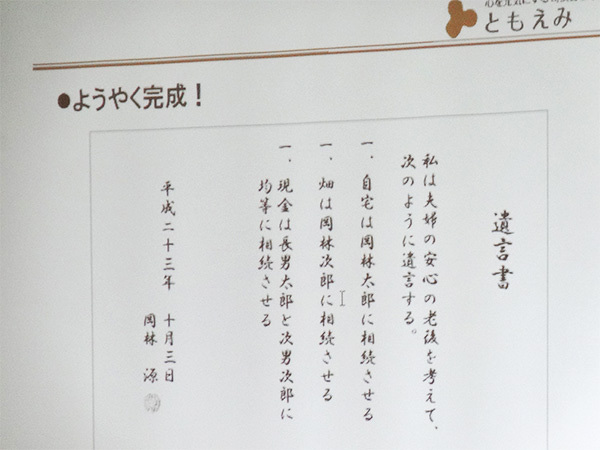 ともえみ
●ようやく完成！
遺言書
私は夫婦の安心の老後を考えて、
次のように遺言する。
一、自宅は岡林太郎に相続させる
一、畑は岡林次郎に相続させる
一、現金は長男太郎と次男次郎に
均等に相続させる
平成二十三年 十月三日
岡林 源